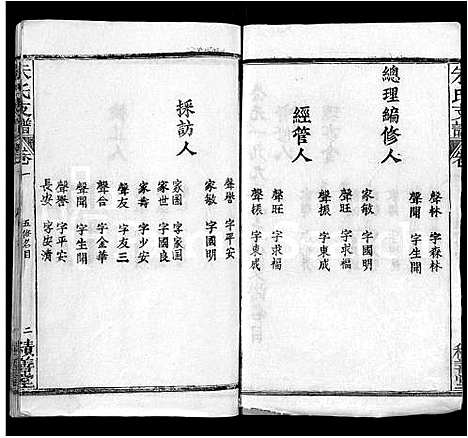 朱氏支譜
卷
總理編修人
聲林 字森林
聲聞 字生開
家敏 字國明
聲旺 字求福
聲振 字東成
經管人
聲旺 字求福
聲振 字東成
家敏 字國明
聲譽 字平安
採訪人
家國 字家國
家世 字國良
家壽 字少安
聲友 字友三
聲合 字金華
聲聞 字生開
聲譽 字平安
長安 字安清
五修名目
朱氏支譜
卷一
二
積善堂